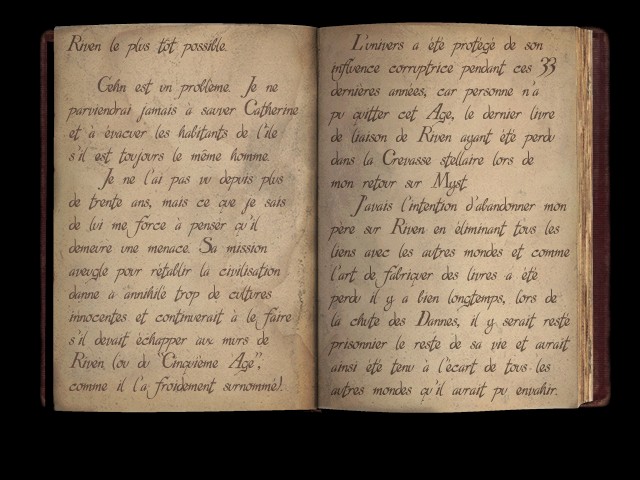 Riven le plus tôt possible.
Gehn est un problème. Je ne
parviendrai jamais à sauver Catherine
et à évacuer les habitants de l'île
s'il est toujours le même homme.
Je ne l'ai pas vu depuis plus
de trente ans, mais ce que je sais
de lui me force à penser qu'il
demeure une menace. Sa mission
aveugle pour rétablir la civilisation
danne a annihilé trop de cultures
innocentes et continuerait à le faire
s'il devait échapper aux murs de
Riven (ou du "Cinquième Age",
comme il l'a froidement surnommé).
L'univers a été protégé de son
influence corruptrice pendant ces 33
dernières années, car personne n'a
pu quitter cet Age, le dernier livre
de liaison de Riven ayant été perdu
dans la Crevasse stellaire lors de
mon retour sur Myst.
J'avais l'intention d'abandonner mon
père sur Riven en éliminant tous les
liens avec les autres mondes et comme
l'art de fabriquer des livres a été
perdu il y a bien longtemps, lors de
la chute des Dannes, il y serait resté
prisonnier le reste de sa vie et aurait
ainsi été tenu à l'écart de tous les
autres mondes qu'il aurait pu envahir.